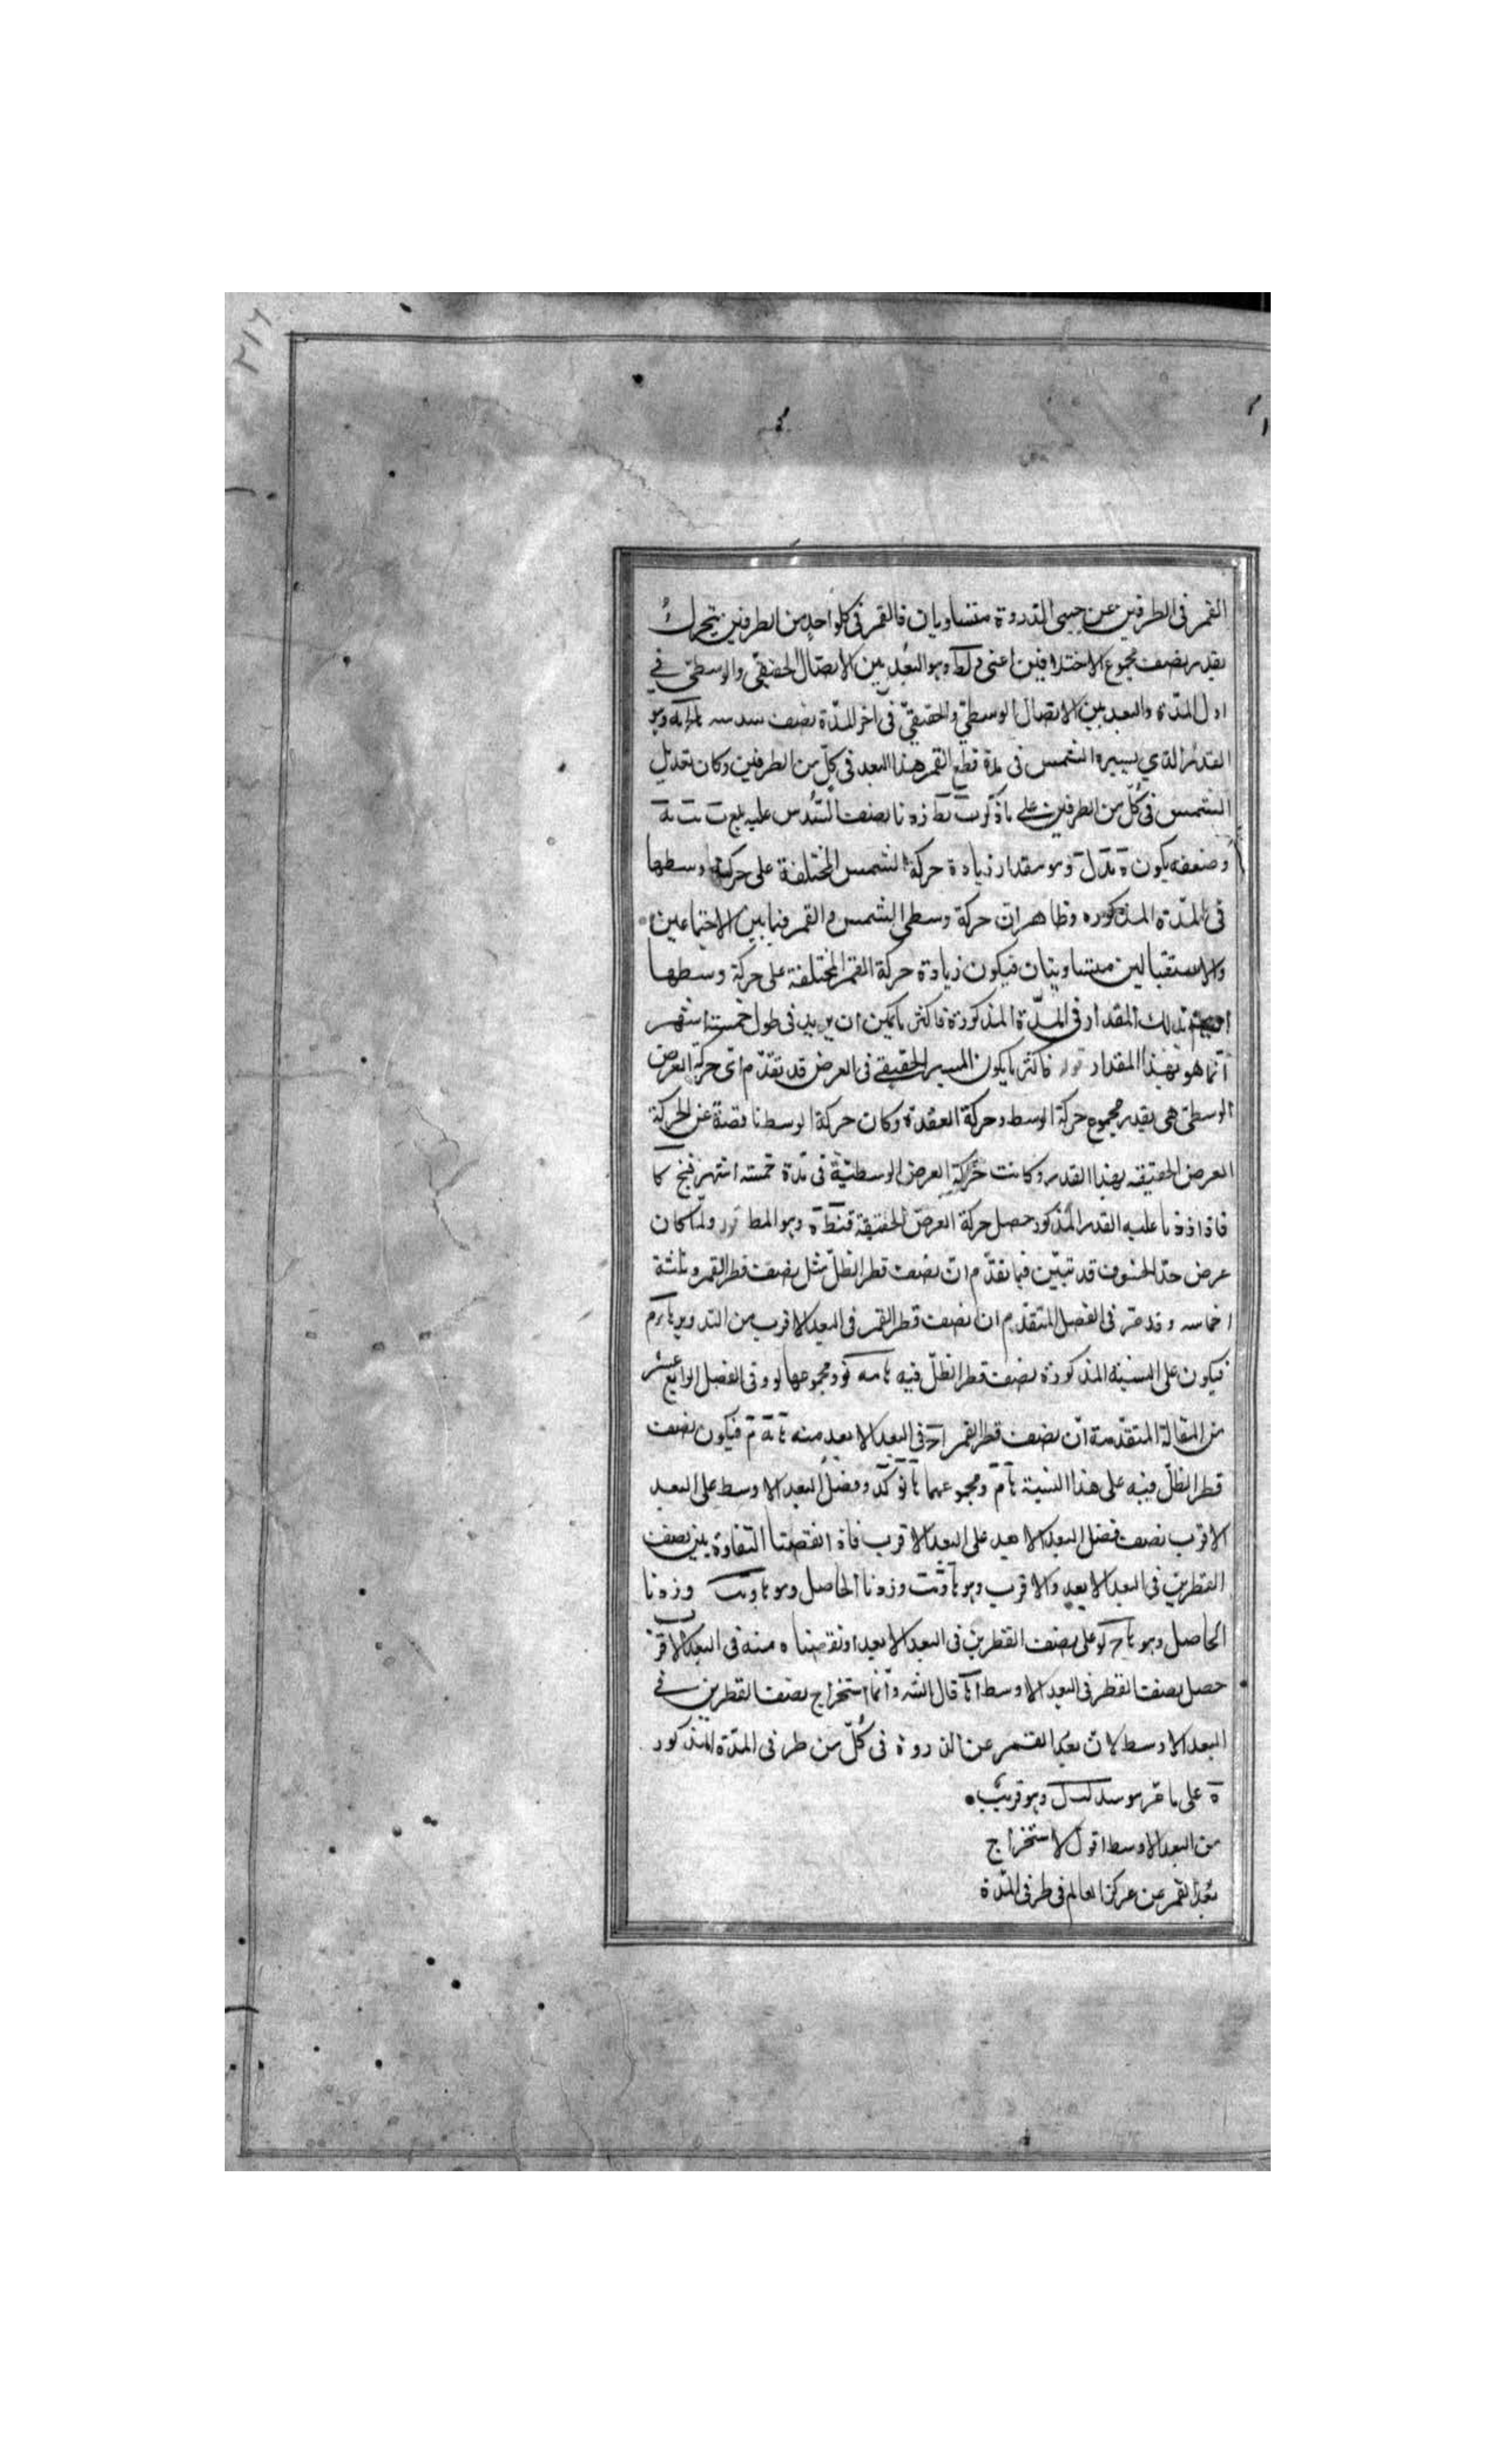 ٢١٦
القمر فى الطرفين عن جنبى التدروة متساويان فالقمر فى كلواحد من الطرفين يتحرك
بقدر نصف مجموع الاختلافين اعنى وهو البعد بين الاتصال الحقيقى والوسطى فى
اول المدة والبعد بين الاتصال الوسطى والحقيقى فى آخر المدة نصف سدسه وهو
القدر الذي يسيره الشمس فى مدة قطع القمر هذا البعد فى كل من الطرفين وكان تعديل
الشمس فى كل من الطرفين على زدنا نصف السدس عليه بلغ
وضعفه يكون وهو مقدار زيادة حركة الشمس المختلفة على حركة وسطها
فى المدة المذكوره وظاهر ان حركة وسطى الشمس والقمر فيما بين الاجتماعين
والاستقبالين متساويتان فيكون زيادة حركة القمر المختلفة على حركة وسطها
بذلك المقدار فى المدة المذكورة فاكثر ما يمكن ان يزيد فى طول خمسة اشهر
انما هو بهذا المقدار فاكثر ما يكون المسير الحقيقى فى العرض قد تقدم ان حركة العرض
الوسطى هى بقدر مجموع حركة الوسط وحركة العقدة وكان حركة الوسط ناقصة عن الحركة
العرض الحقيقه بهذا القدر وكانت حركة العرض الوسطية فى مدة خمسة اشهر قنج كا
فاذا زدنا عليه القدر المذكور حصل حركة العرض الحقيقة قنط ة وهو المط ولما كان
عرض حد الخسوف قد تبين فيما تقدم ان نصف قطر الظل مثل نصف قطر القمر وثلثة
اخماسه وقد مر فى الفصل المتقدم ان نصف قطر القمر فى البعد الاقرب من التدوير
فيكون على النسبة المذكورة نصف قطر الظل فيه ومجموعهما وفى الفصل الرابع عشر
من المقالة المتقدمة ان نصف قطر القمر فى البعد الابعد منه فيكون نصف
قطر الظل فيه على هذا النسبة ومجموعهما وفضل البعد الاوسط على البعد
الاقرب نصف فضل البعد الابعد على البعد الاقرب فاذا نقصنا التفاوة بين نصف
القطرين فى البعد الابعد والاقرب وهو وزدنا الحاصل وهو وزدنا
الحاصل وهو على نصف القطرين فى البعد الابعد او نقصناه منه فى البعد الاقرب
حصل نصف القطر فى البعد الاوسط قال الشه وانما استخراج نصف القطرين فى
البعد الاوسط لان بعد القمر عن الذروة فى كل من طرفى المدة المذكور
ة على ما مر هو وهو قريب
من البعد الاوسط اقول لاستخراج
بعد القمر عن مركز العالم فى طرفى المدة